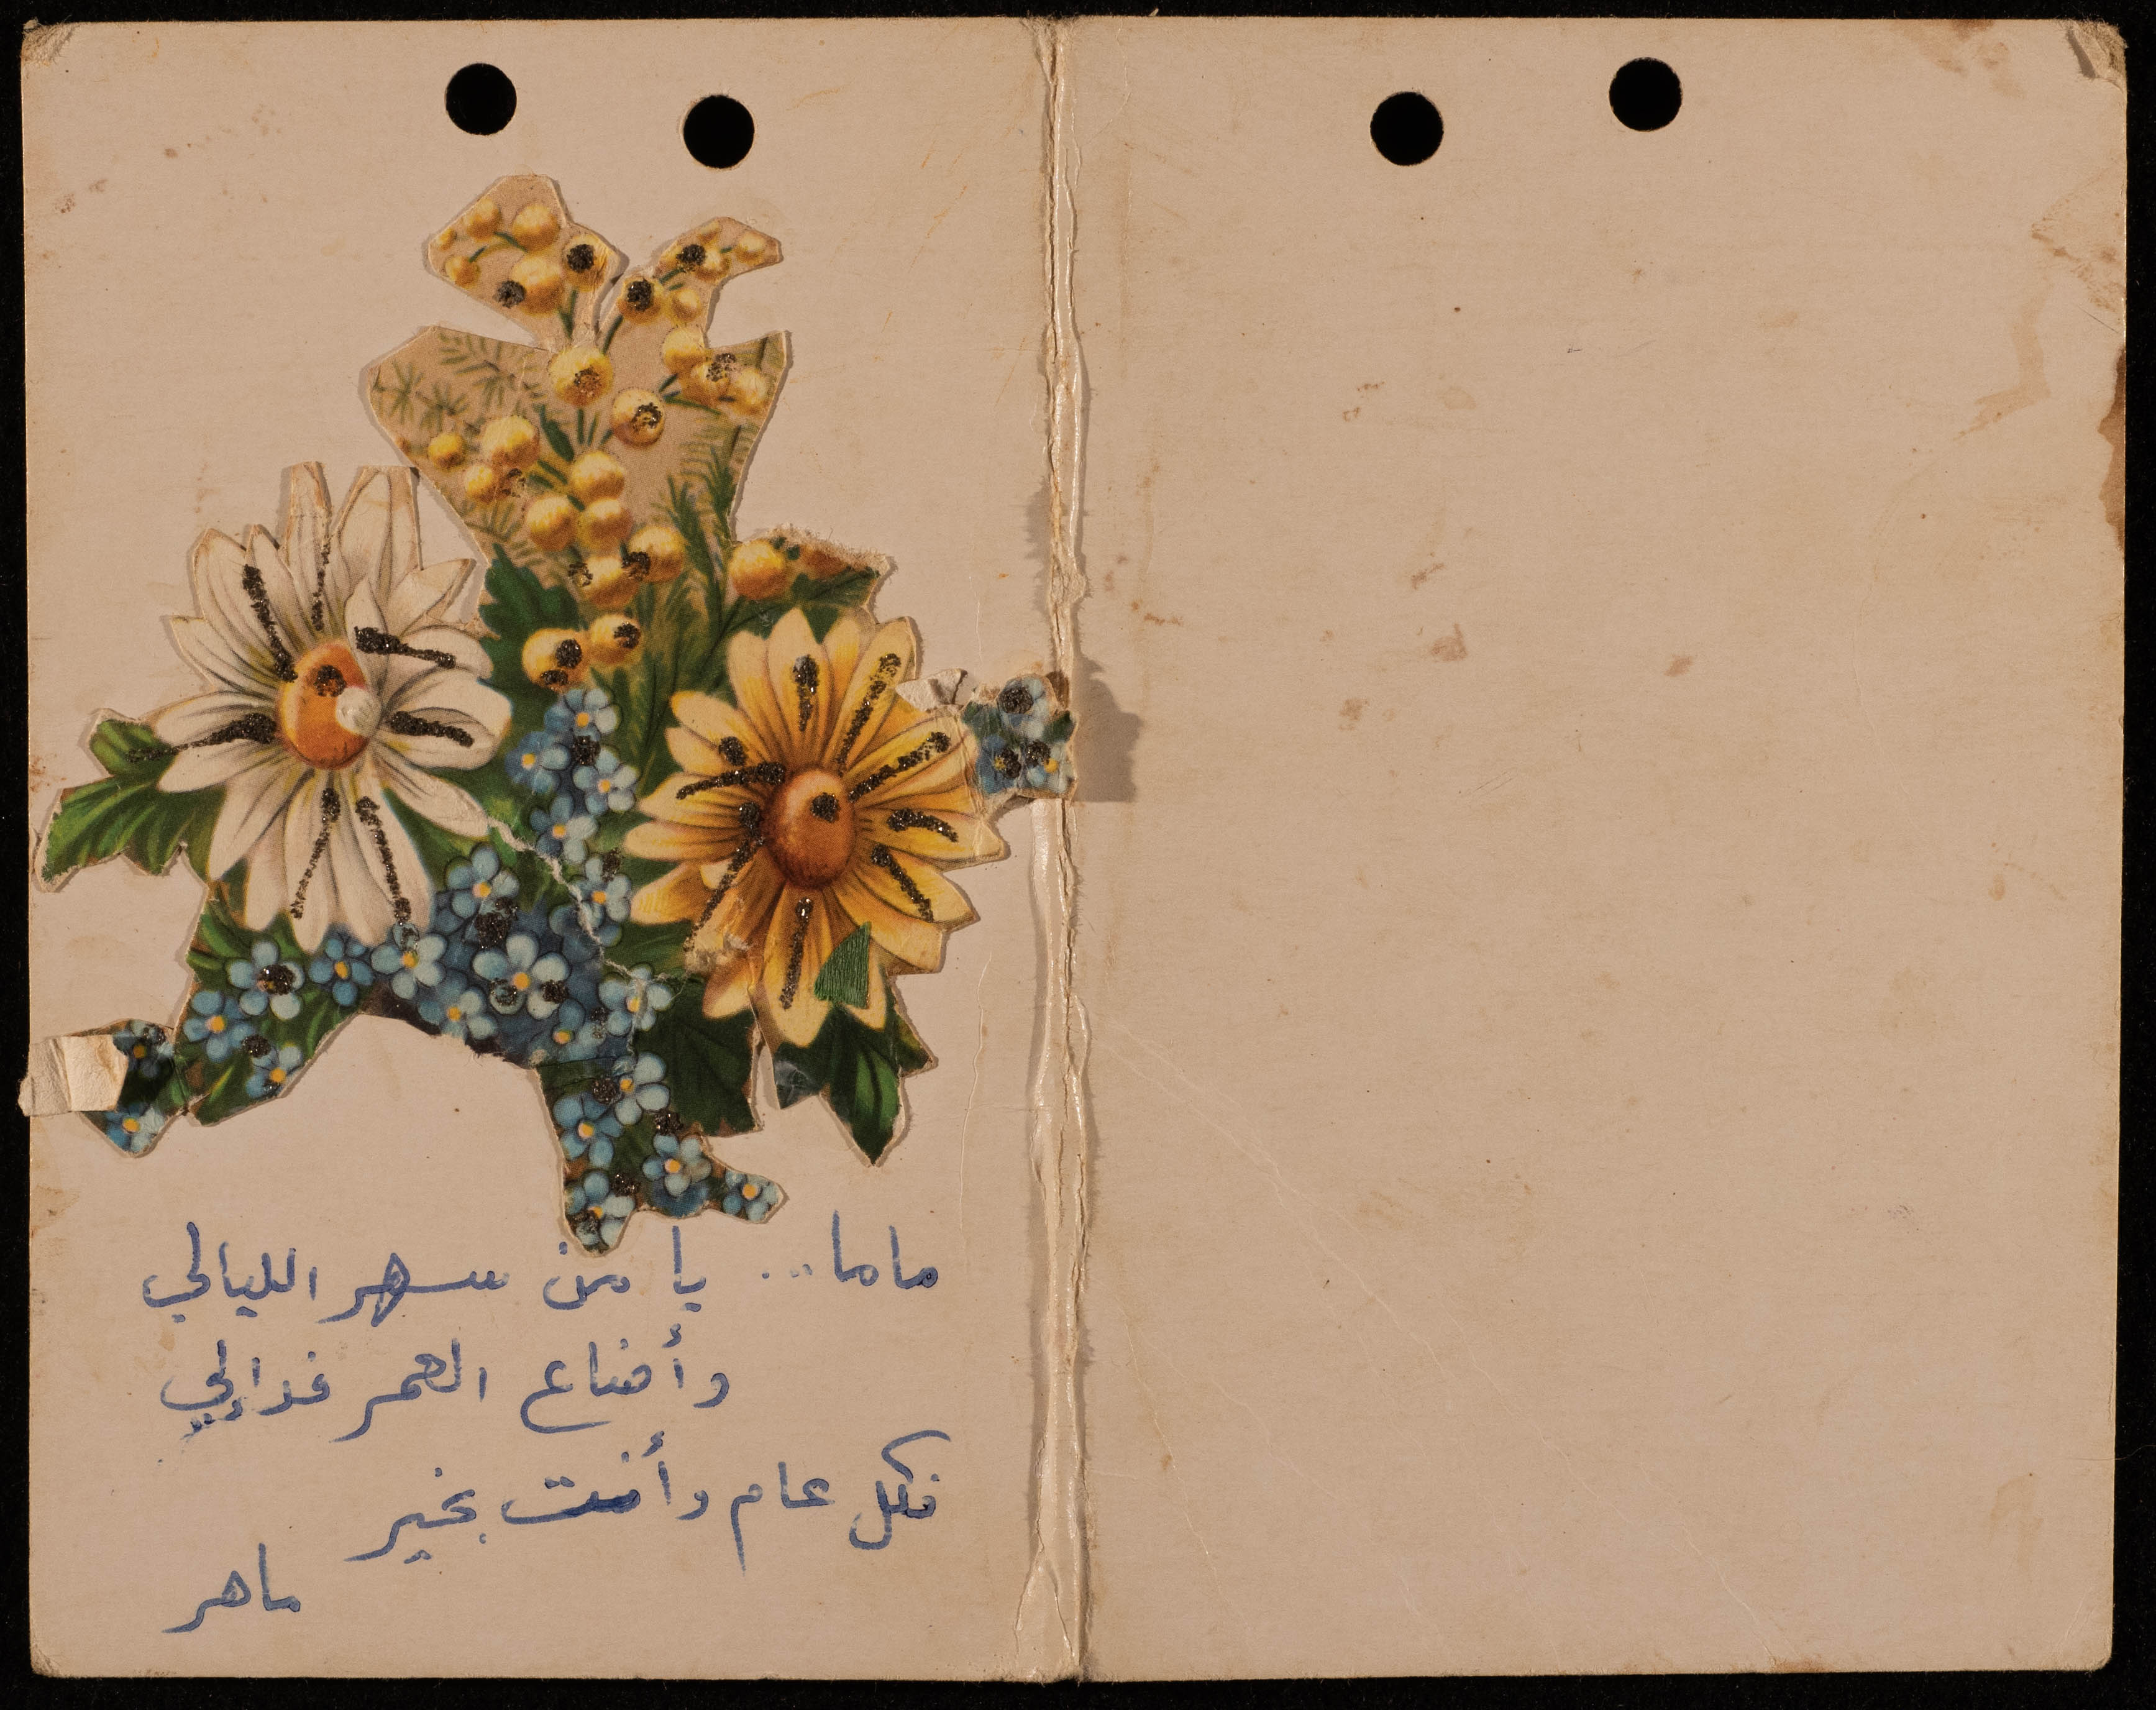 ماما... يا من سهر الليالي
وأضاع العمر فدا لي
فكل عام وأنت بخير
ماهر